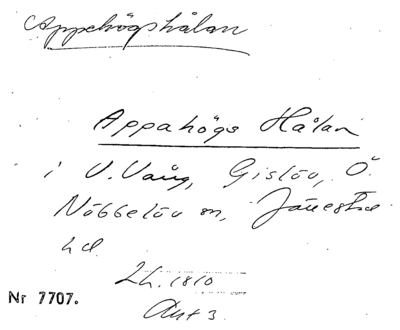 Appehögshålan
Appahögs Hålan
i V. Vång, Gislöv, Ö.
Nöbbelöv sn, Järrestads
hd.
Lh. 1810
Nr 7707.
Akt 3